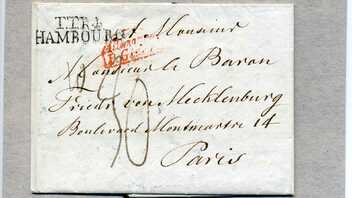 T.T.R.4
HAMBOURG
A Monsieur
Monsieur le Baron
Friedr. von Mecklenburg
Boulevard Montmartre 14
Paris